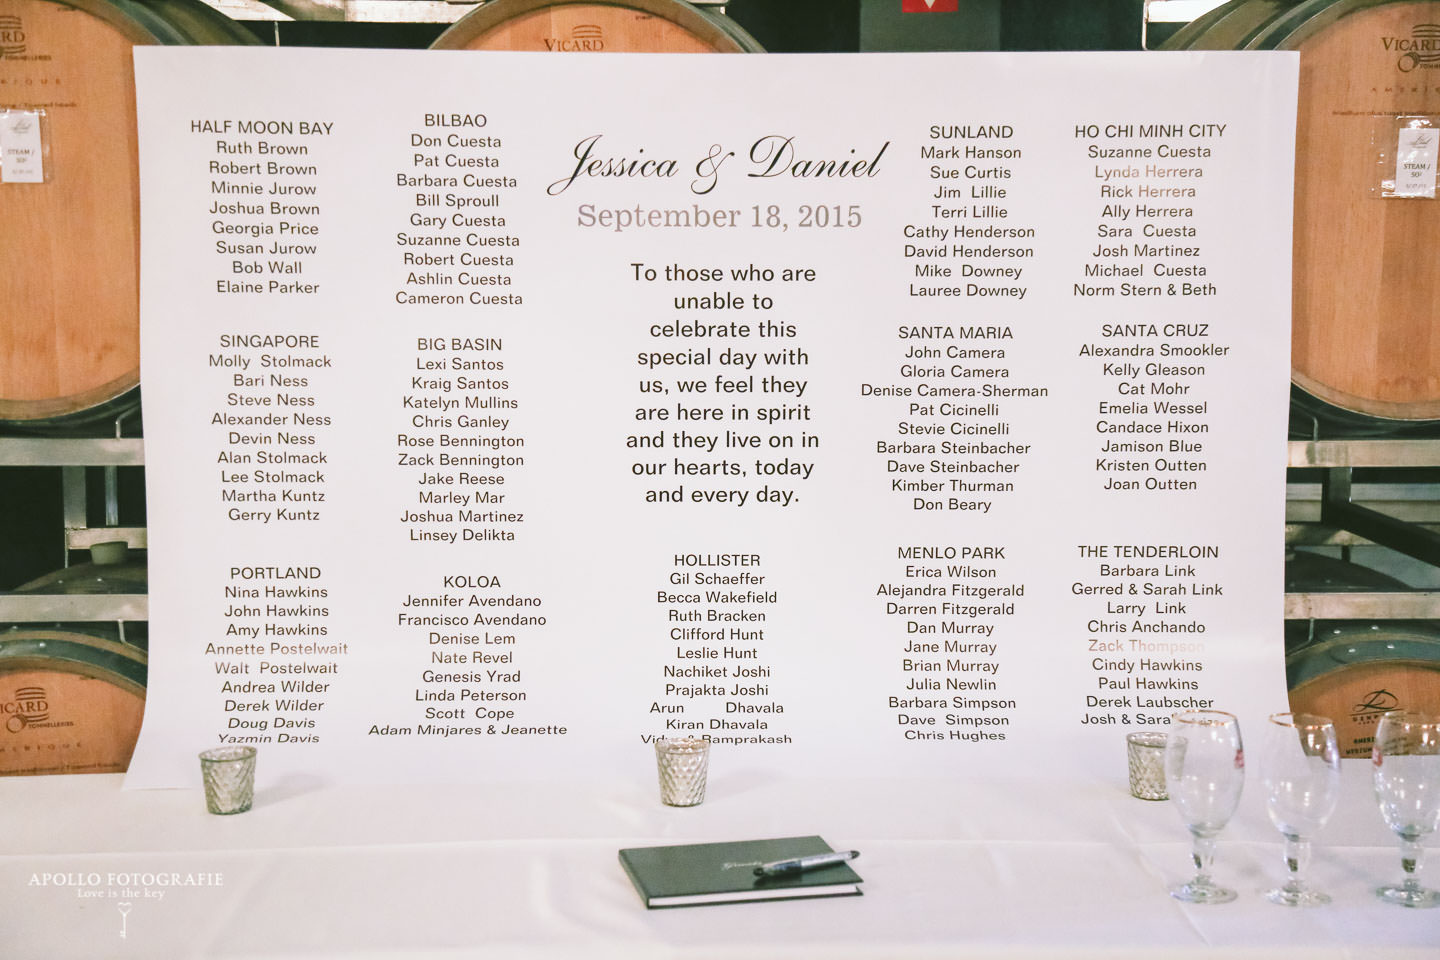 VICARD
VICARD
TONNELLERIES
AMERIQUE
STEAM /
HALF MOON BAY
Ruth Brown
Robert Brown
Minnie Jurow
Joshua Brown
Georgia Price
Susan Jurow
Bob Wall
Elaine Parker
BILBAO
Don Cuesta
Pat Cuesta
Barbara Cuesta
Bill Sproull
Gary Cuesta
Suzanne Cuesta
Robert Cuesta
Ashlin Cuesta
Cameron Cuesta
Jessica & Daniel
September 18, 2015
To those who are
unable to
celebrate this
special day with
us, we feel they
are here in spirit
and they live on in
our hearts, today
and every day.
SUNLAND
Mark Hanson
Sue Curtis
Jim Lillie
Terri Lillie
Cathy Henderson
David Henderson
Mike Downey
Lauree Downey
HO CHI MINH CITY
Suzanne Cuesta
Lynda Herrera
Rick Herrera
Ally Herrera
Sara Cuesta
Josh Martinez
Michael Cuesta
Norm Stern & Beth
SINGAPORE
Molly Stolmack
Bari Ness
Steve Ness
Alexander Ness
Devin Ness
Alan Stolmack
Lee Stolmack
Martha Kuntz
Gerry Kuntz
BIG BASIN
Lexi Santos
Kraig Santos
Katelyn Mullins
Chris Ganley
Rose Bennington
Zack Bennington
Jake Reese
Marley Mar
Joshua Martinez
Linsey Delikta
SANTA MARIA
John Camera
Gloria Camera
Denise Camera-Sherman
Pat Cicinelli
Stevie Cicinelli
Barbara Steinbacher
Dave Steinbacher
Kimber Thurman
Don Beary
SANTA CRUZ
Alexandra Smookler
Kelly Gleason
Cat Mohr
Emelia Wessel
Candace Hixon
Jamison Blue
Kristen Outten
Joan Outten
PORTLAND
Nina Hawkins
John Hawkins
Amy Hawkins
Annette Postelwait
Walt Postelwait
Andrea Wilder
Derek Wilder
Doug Davis
Yazmin Davis
KOLOA
Jennifer Avendano
Francisco Avendano
Denise Lem
Nate Revel
Genesis Yrad
Linda Peterson
Scott Cope
Adam Minjares & Jeanette
HOLLISTER
Gil Schaeffer
Becca Wakefield
Ruth Bracken
Clifford Hunt
Leslie Hunt
Nachiket Joshi
Prajakta Joshi
Arun Dhavala
Kiran Dhavala
Ramprakash
MENLO PARK
Erica Wilson
Alejandra Fitzgerald
Darren Fitzgerald
Dan Murray
Jane Murray
Brian Murray
Julia Newlin
Barbara Simpson
Dave Simpson
Chris Hughes
THE TENDERLOIN
Barbara Link
Gerred & Sarah Link
Larry Link
Chris Anchando
Zack Thompson
Cindy Hawkins
Paul Hawkins
Derek Laubscher
Josh &
VICARD
TONNELLERIES
AMERIQUE
STEAM /
VICARD
TONNELLERIES
APOLLO FOTOGRAFIE
Love is the key